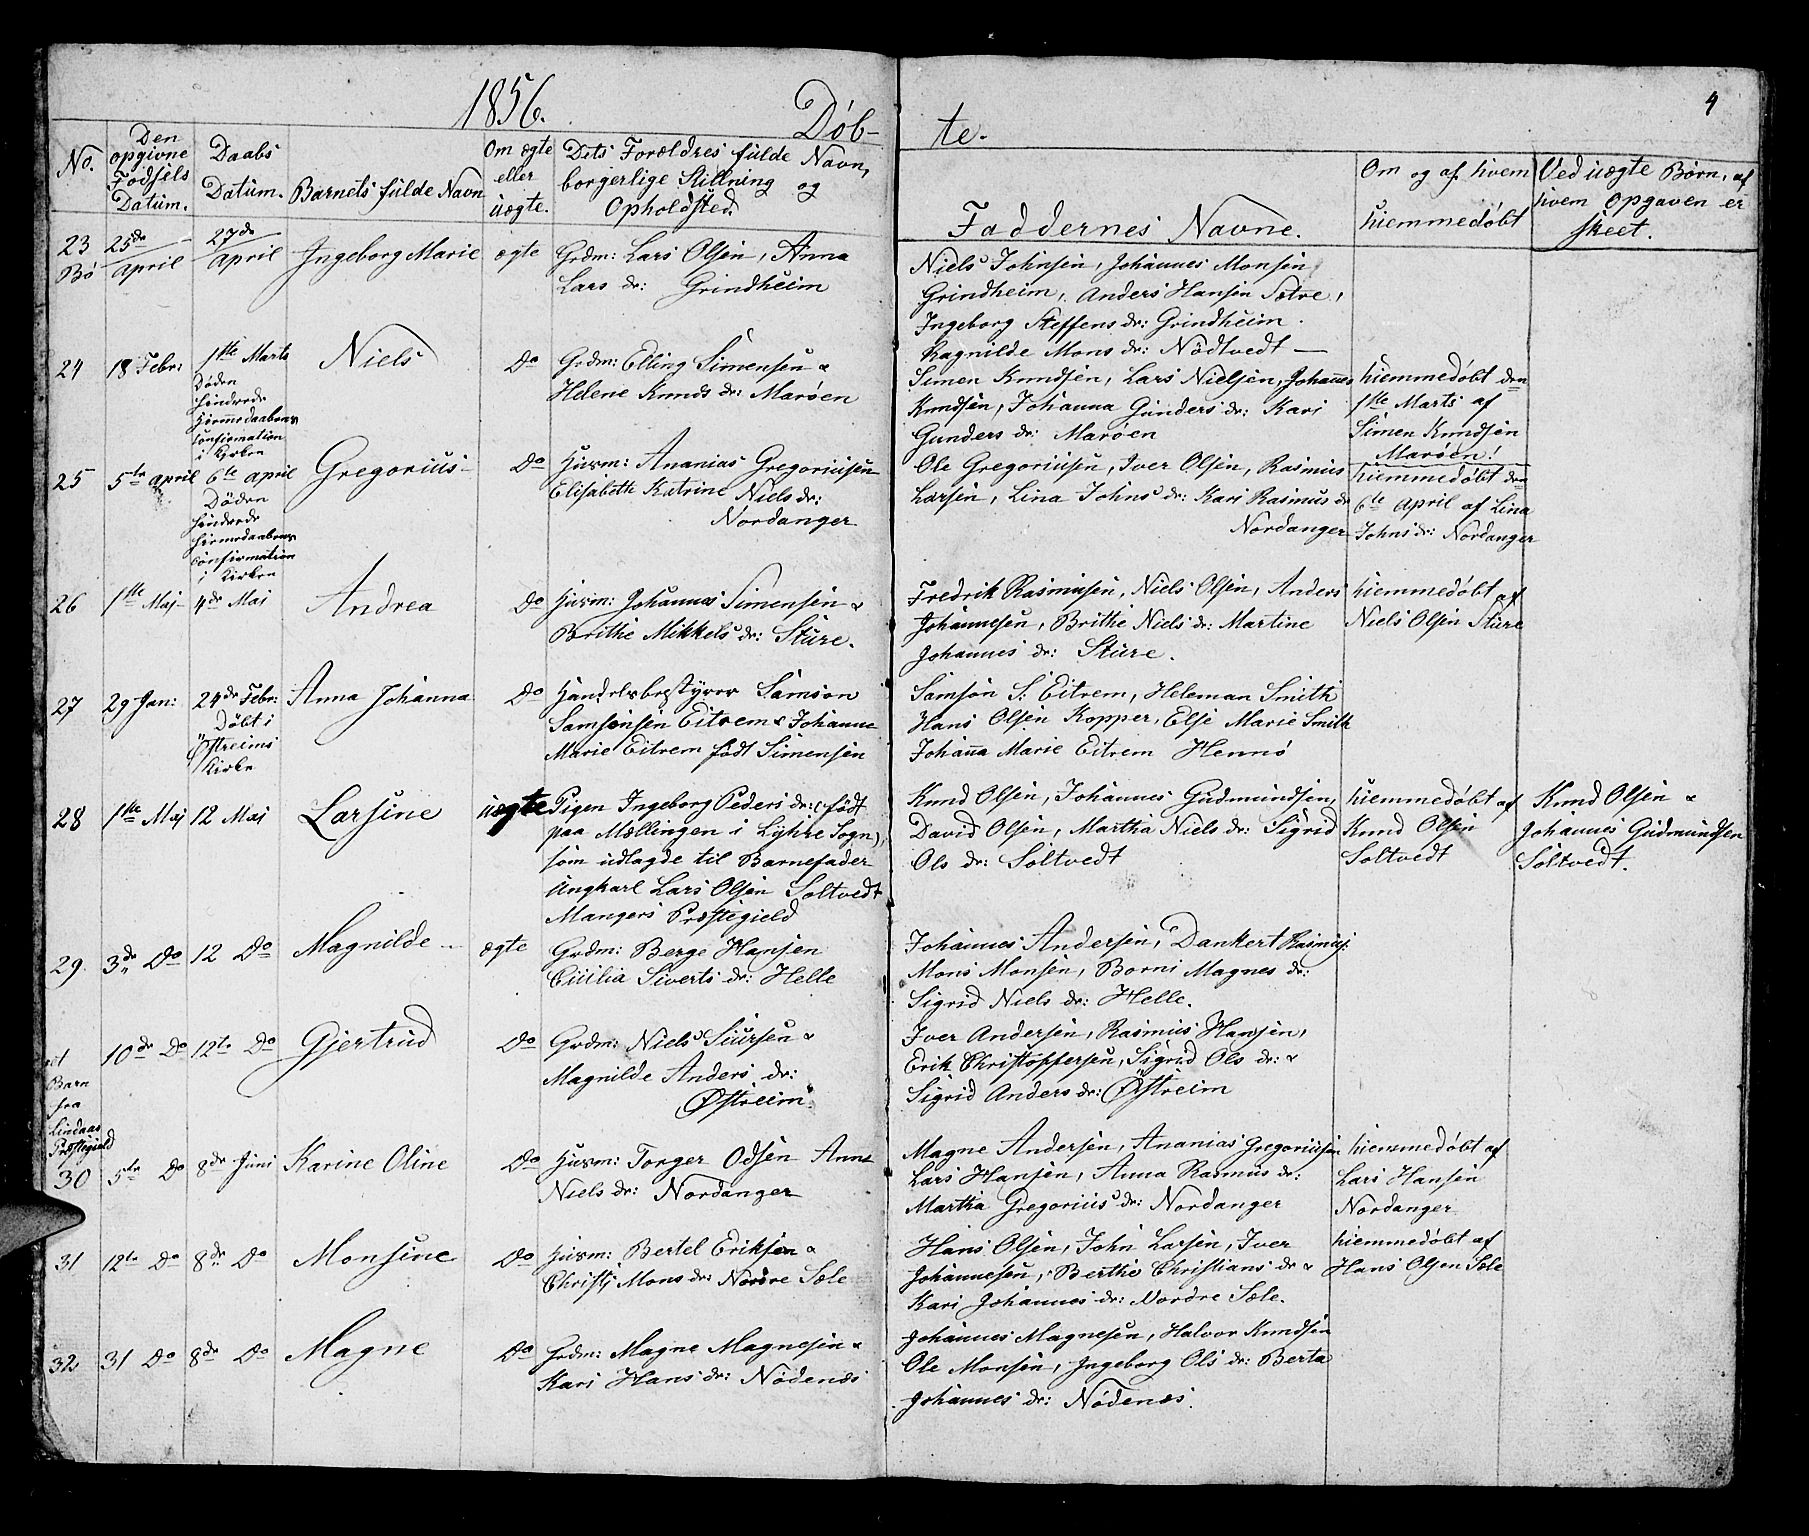 1856.
Döb-
te.
4
No.
Den opgivne Födsels Datum.
Daabs Datum.
Barnets fulde Navn
Om ægte eller uægte.
Dets Forældres fulde Navn, borgerlige Stilling og Opholdsted.
Faddernes Navne.
Om og af hvem hiemmedöbt
Ved uægte Börn, af hvem Opgaven er skeet.
23 Bö
25de April
27de April
Ingeborg Marie
ægte
Grdm: Lars Olsen, Anna
Lars dr: Grindheim
Niels Johnsen, Johannes Monsen
Grindheim, Anders Hansen Sætre,
Ingeborg Steffens dr: Grindheim.
Ragnilde Mons dr: Nödtvedt —
24
18 Febr:
1ste Marts
Döden
hindrede
Hjemmedaabens
Confirmation
i Kirken
Niels
Do
Grdm: Elling Simensen &
Helene Knuds dr: Maröen
Simen Knudsen, Lars Nielsen, Johannes
Knudsen, Johanna Gunders dr: Kari
Gunders dr: Maröen
hiemmedöbt den
1ste Marts af
Simen Knudsen
Maröen!
25
5te April
6te April
Döden
hindrede
Hiemmedaabens
Confirmation
i Kirken
Gregorius
Do
Husm: Ananias Gregoriusen
Elisabeth Katrine Niels dr:
Nordanger
Ole Gregoriusen, Iver Olsen, Rasmus
Larsen, Lina Johns dr: Kari Rasmus dr
Nordanger
hiemmedöbt den
6te April af Lina
Johns dr: Nordanger
26
1ste Maj
4de Maj
Andrea
Do
Husm: Johannes Simensen &
Brithe Mikkels dr: Sture.
Fredrik Rasmusen, Niels Olsen, Anders
Johannesen, Brithe Niels dr: Martine
Johannes dr: Sture.
hiemmedöbt af
Niels Olsen Sture
27
29 Jan:
24de Febr:
Döbt i
Östreims
Kirke
Anna Johanna
Do
Handelsbestyrer Samson
Samsonsen Eitrem & Johanne
Marie Eitrem födt Simensen
Samson S. Eitrem, Heleman Smith
Hans Olsen Kopper, Else Marie Smith
Johanna Marie Eitrem Hennö
28
1ste Maj
12 Maj
Larsine
uægte
Pigen Ingeborg Peders dr: (födt
paa Mællingen i Lyhre Sogn),
som udlagde til Barnefader
Ungkarl Lars Olsen Soltvedt
Mangers Præstegield
Knud Olsen, Johannes Gudmundsen,
David Olsen, Martha Niels dr: Sigrid
Ols dr: Soltvedt
hiemmedöbt af
Knud Olsen
Soltvedt
Knud Olsen &
Johannes Gudmundsen
Soltvedt.
29.
3de Do
12 Do
Magnilde
ægte
Grdm: Berge Hansen
Cicilia Siverts dr: Helle
Johannes Andersen, Dankert Rasmus:
Mons Monsen, Borni Magnes dr:
Sigrid Niels dr: Helle.
et
Barn
fra
Lindaas
Præstegield
10de Do
12te Do
Gjertrud
Do
Grdm: Niels Siursen &
Magnilde Anders dr:
Östreim
Iver Andersen, Rasmus Hansen,
Erik Christoffersen, Sigrid Ols dr: &
Sigrid Anders dr: Östreim
30
5te Do
8de Juni
Karine Oline
Do
Husm: Torger Odsen Anna
Niels dr: Nordanger
Magne Andersen, Ananias Gregoriusen
Lars Hansen, Anna Rasmus dr:
Martha Gregorius dr: Nordanger
hiemmedöbt af
Lars Hansen
Nordanger
31
12te Do
8de Do
Monsine
Do
Husm: Bertel Eriksen &
Christi Mons dr: Nordre Sæle
Hans Olsen, John Larsen, Iver
Johannesen, Berthe Christians dr &
Kari Johannes dr: Nordre Sæle.
hiemmedöbt af
Hans Olsen Sæle
32
31 Do
8de Do
Magne
Do
Grdm: Magne Magnesen &
Kari Hans dr: Nödenæs
Johannes Magnesen, Halvor Knudsen
Ole Monsen, Ingeborg Ols dr: Berta
Johannes dr: Nödenæs.